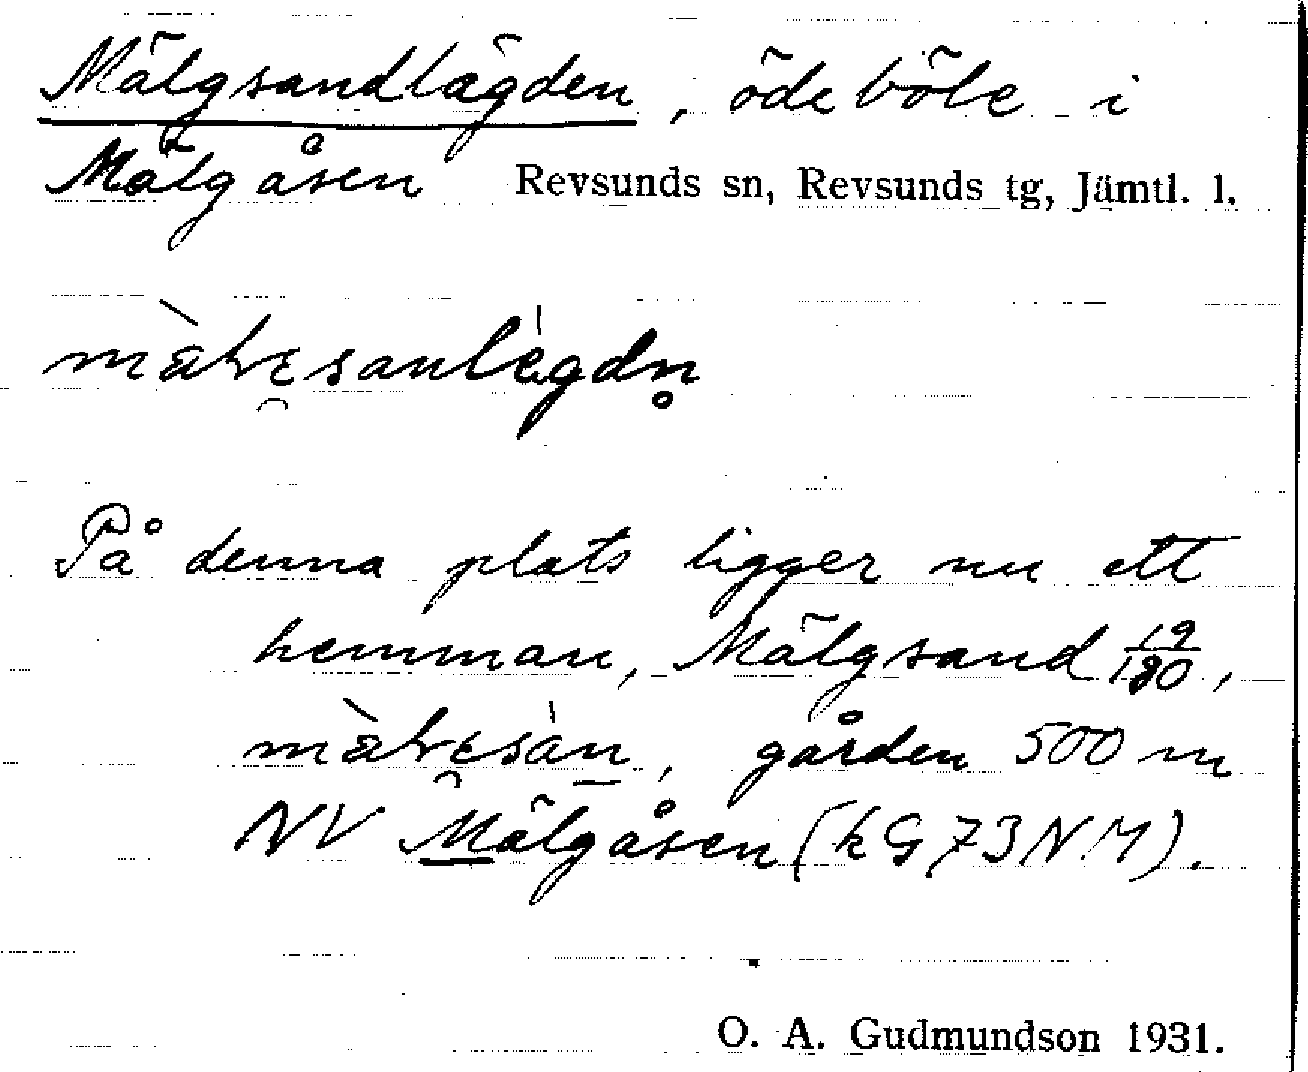 Mälgsandlägden, ödeböle i
Mälgåsen Revsunds sn, Revsunds tg, Jämtl. l.
På denna plats ligger nu ett
hemman, Mälgsand 19/180,
gården 500 m
NV Mälgåsen (kG73NM).
O. A. Gudmundson 1931.